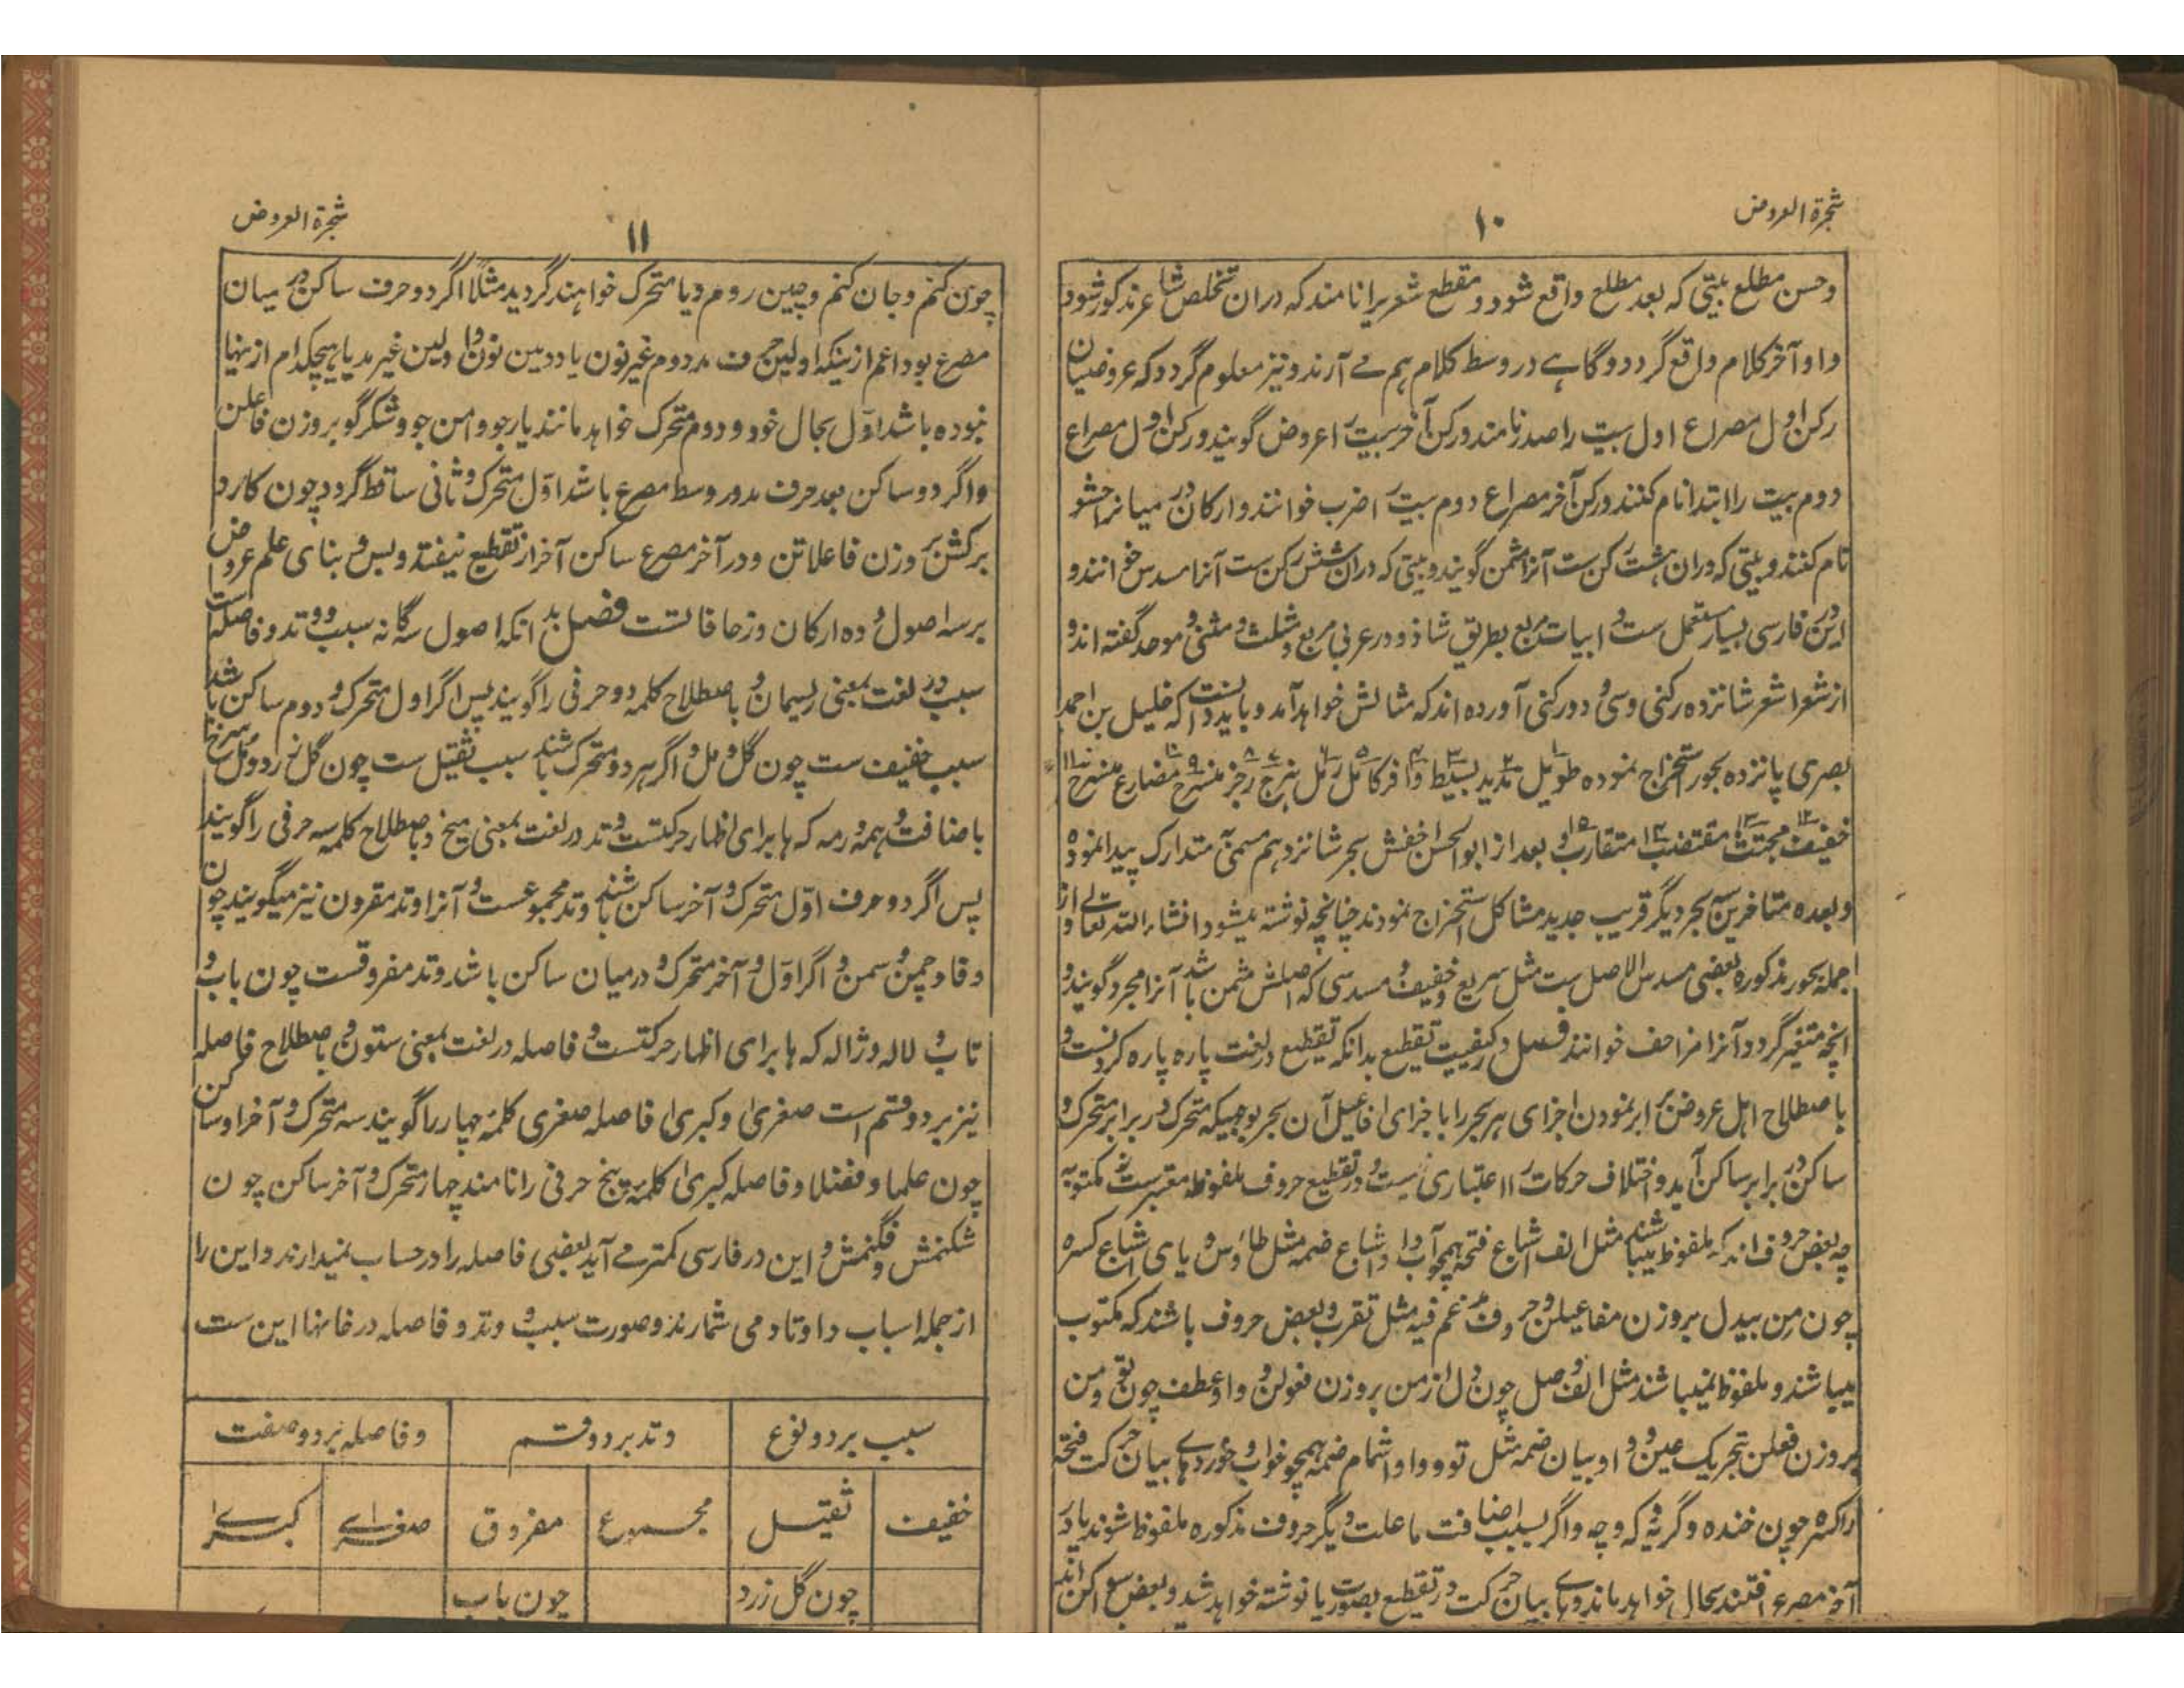 شجرة العروض
۱۰
وحسن مطلع بیتی که بعد مطلع واقع شود و مقطع شعریرا نامند که دران تخلص شاعر مذکور شود
واو آخر کلام واقع گردد و گاہے در وسط کلام ہم مے آرند و نیز معلوم گردد که عروضیان
رکن اول مصراع اول بیت را صدر نامند و رکن آخر بیت را عروض گویند و رکن اول مصراع
دوم بیت را ابتدا نام کنند و رکن آخر مصراع دوم بیت را ضرب خوانند و ارکان در میانرا حشو
نام کنند و بیتی که دران ہشت رکن ست آنرا مثمن گویند و بیتی که دران شش رکن ست آنرا مسدس خوانند و
این در فارسی بسیار مستعمل ست و ابیات مربع بطریق شاذ و در عربی مربع و مثلث و مثنی و موحد گفته اند و
از شعرا شعر شانزده رکنی و سی و دو رکنی آورده اند که مثالش خواہد آمد و باید دانست که خلیل بن احمد
بصری پانزده بحور استخراج نموده طویل ۱ مدید ۲ بسیط ۳ وافر ۴ کامل ۵ رمل ۶ ہزج ۷ رجز ۸ منسرح ۹ مضارع ۱۰ منسرح ۱۱
خفیف ۱۲ مجتث ۱۳ مقتضب ۱۴ متقارب ۱۵ و بعد از ابوالحسن اخفش بحر شانزدہم مسمی متدارک پیدا نموده
و بعده متاخرین سه بحر دیگر قریب جدید مشاکل استخراج نمودند چنانچه نوشته میشود انشاء الله تعالے و از
جمله بحور مذکوره بعضی مسدس الاصل ست مثل سریع و خفیف و مسدسی که اصلش مثمن باشد آنرا مجرد گویند و
انچه متغیر گردد آنرا مزاحف خوانند فصل در کیفیت تقطیع بدانکه تقطیع در لغت پاره پاره کردنست و
باصطلاح اہل عروض برابر نمودن اجزای ہر بحر را باجزای افاعیل آن بحر بوجہیکه متحرک در برابر متحرک و
ساکن در برابر ساکن آید و اختلاف حرکات را اعتباری نیست و در تقطیع حروف ملفوظه معتبرست نه مکتوبه
چه بعض حروف اند که ملفوظ میباشند مثل الف اشباع فتحه ہمچو آب و واو اشباع ضمه مثل طاؤس و یای اشباع کسره
چون من بیدل بروزن مفاعیلن و حروف مدغم فیه مثل تقرب و بعض حروف باشند که مکتوب
میباشند و ملفوظ نمیباشند مثل الف وصل چون دل از من بروزن فعولن و واو عطف چون تو و من
بروزن فعلن بتحریک عین و واو بیان ضمه مثل تو و دو واو اشمام ضمه ہمچو خواب و خورد و ہاے بیان حرکت فتحه
را کسره چون خنده و گریه و که و چه و اگر بسبب اضافت یا علت دیگر حروف مذکوره ملفوظ شوند یا در
آخر مصرع افتند بحال خواہد ماند و ہاے بیان حرکت در تقطیع بصورت یا نوشته خواہد شد و بعض ساکن اند
شجرة العروض
۱۱
چون کنم و جان کنم و چین روم و یا متحرک خواہند گردید مثلاً اگر دو حرف ساکن در میان
مصرع بود اعم ازینکه اولین حرف مد و دوم غیر نون یا دومین نون و اولین غیر مد یا ہیچکدام ازینہا
نبوده باشد اول بحال خود و دوم متحرک خواہد ماند یارجو و امن جو و شکر گو بروزن فاعلن
و اگر دو ساکن بعد حرف مد در وسط مصرع باشد اول متحرک و ثانی ساقط گردد چون کارد
برکش بر وزن فاعلاتن و در آخر مصرع ساکن آخر از تقطیع نیفتد و بس و بنای علم عروض
بر سه اصول و ده ارکان و زحافاتست فصل بدانکه اصول سه گانه سبب و وتد و فاصله است
سبب در لغت بمعنی ریسمان و باصطلاح کلمه دو حرفی را گویند پس اگر اول متحرک و دوم ساکن باشد
سبب خفیف ست چون گل و مل و اگر ہر دو متحرک باشند سبب ثقیل ست چون گل زرد و مل سرخ
باضافت و ہمه و رمه که ہا برای اظہار حرکتست و وتد در لغت بمعنی میخ و باصطلاح کلمه سه حرفی را گویند
پس اگر دو حرف اول متحرک و آخر ساکن باشند وتد مجموعست و آنرا وتد مقرون نیز میگویند چون
وفا و چمن و سمن و اگر اول و آخر متحرک و درمیان ساکن باشد وتد مفروقست چون باب و
تاب و لاله و ژاله که ہا برای اظہار حرکتست و فاصله در لغت بمعنی ستون و باصطلاح فاصله
نیز بر دو قسم است صغریٰ و کبریٰ فاصله صغری کلمه چہار را گویند سه متحرک و آخر او ساکن
چون علما و فضلا و فاصله کبریٰ کلمه پنج حرفی را نامند چہار متحرک و آخر ساکن چون
شکنمش و فگنمش و این در فارسی کمتر مے آید بعضی فاصله را در حساب نمیدارند و این را
از جمله اسباب و اوتاد می شمارند و صورت سبب و وتد و فاصله در خانہا این ست
سبب بر دو نوع | وتد بر دو قسم | وفاصله بر دو صفت
خفیف | ثقیل | مجموع | مفروق | صغراے | کبراے
چون گل زرد | چون باب